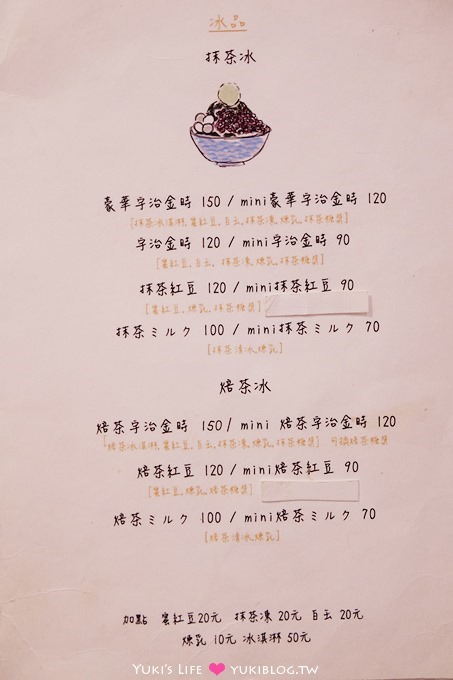 冰品
抹茶冰
豪華宇治金時 150 / mini豪華宇治金時 120
[抹茶冰淇淋,蜜紅豆,白玉,抹茶凍,煉乳,抹茶糖漿]
宇治金時 120 / mini宇治金時 90
[蜜紅豆,白玉,抹茶凍,煉乳,抹茶糖漿]
抹茶紅豆 120 / mini抹茶紅豆 90
[蜜紅豆,煉乳,抹茶糖漿]
抹茶ミルク 100 / mini抹茶ミルク 70
[抹茶清冰煉乳]
焙茶冰
焙茶宇治金時 150/ mini 焙茶宇治金時 120
[焙茶冰淇淋,蜜紅豆,白玉,抹茶凍,煉乳,抹茶糖漿] 可換焙茶糖漿
焙茶紅豆 120 / mini焙茶紅豆 90
[蜜紅豆,煉乳,焙茶糖漿]
焙茶ミルク 100 / mini焙茶ミルク 70
[焙茶清冰煉乳]
加點 蜜紅豆20元 抹茶凍 20元 白玉 20元
煉乳 10元 冰淇淋 50元
YUKI'S LIFE ❤ YUKIBLOG.TW